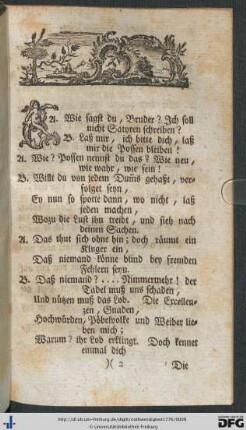 A. Wie sagst du, Bruder? Ich soll
nicht Satyren schreiben?
B. Laß mir, ich bitte dich, laß
mir die Possen bleiben!
A. Wie? Possen nennst du das? Wie neu,
wie wahr, wie fein!
B. Willt du von jedem Duns gehaßt, ver-
folget seyn,
Ey nun so spotte dann, wo nicht, laß
jeden machen,
Wozu die Lust ihn treibt, und sieh nach
deinen Sachen.
A. Das thut sich ohne hin; doch räumt ein
Kluger ein,
Daß niemand könne blind bey fremden
Fehlern seyn.
B. Daß niemand? .... Nimmermehr! der
Tadel muß uns schaden,
Und nützen muß das Lob. Die Excellen-
zen, Gnaden,
Hochwürden, Pöbelvolke und Weiber lie-
ben mich;
Warum? ihr Lob erklingt. Doch kennet
einmal dich
)( 2 Die
© Universitätsbibliothek Freiburg